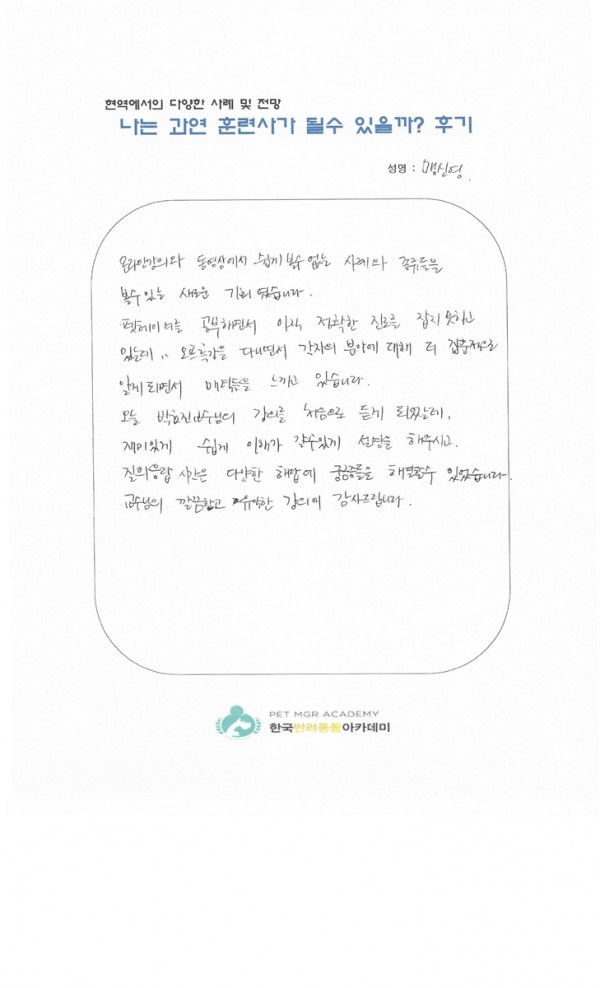 현역에서의 다양한 사례 및 전망
나는 과연 훈련사가 될수 있을까? 후기
성명 : 맹신영
온라인강의와 동영상에서 쉽게 볼수 없는 사례와 종류들을
볼수있는 새로운 기회 였습니다.
펫헤이터를 공부하면서 아직 정확한 진로를 잡지 못하고
있는데.. 오프특강을 다니면서 각자의 분야에 대해 더 집중적으로
알게 되면서 매력들을 느끼고 있습니다.
오늘 박효진교수님의 강의를 처음으로 듣게 되었는데,
재미있게 쉽게 이해가 갈수있게 설명을 해주시고,
질의응답 시간은 다양한 해답에 궁금증들을 해결할수 있었습니다.
교수님의 깔끔하고 유익한 강의에 감사드립니다.
PET MGR ACADEMY
한국반려동물아카데미